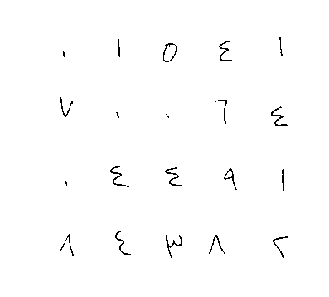 ٠ ١ ٥ ٤ ١
٧ ٠ ٠ ٦ ٤
٠ ٤ ٤ ٩ ١
٨ ٤ ٣ ٨ ٢